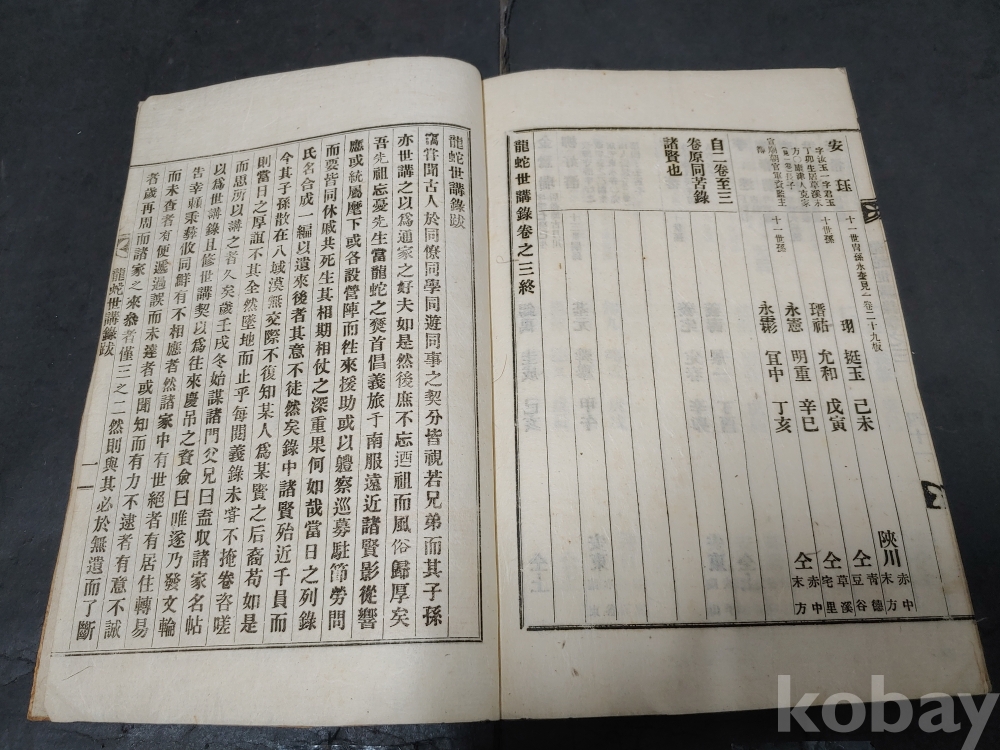 安珏
字汝玉一字君玉
丁卯生居草溪末
方○廟議人克家
(見一卷)長子
官廟朝官軍資監主
簿
十一世胄孫永奎見一卷二十九版
翊 挺玉 己未 陜川 赤中 末方
十世孫
瑨祐 允和 戊寅 仝 青德 豆谷
永憲 明重 辛巳 仝 草溪 宅里
十一世孫
永霦 宜中 丁亥 仝 赤中 末方
自二卷至三
卷原同苦錄
諸賢也
龍蛇世講錄卷之三終
龍蛇世講錄跋
竊嘗聞古人於同僚同學同遊同事之契分皆視若兄弟而其子孫
亦世講之以爲通家之好夫如是然後庶不忘迺祖而風俗歸厚矣
吾先祖忘憂先生當龍蛇之燹首倡義旅于南服遠近諸賢影從響
應或統屬麾下或各設營陣而徃來援助或以軆察巡募駐節勞問
而要皆同休戚共死生其相期相仗之深重果何如哉當日之列錄
氏名合成一編以遺來後者其意不徒然矣錄中諸賢殆近千員而
今其子孫散在八域漠無交際不復知某人爲某賢之后裔苟如是
則當日之厚誼不其全然墜地而止乎每閱義錄未嘗不掩卷咨嗟
而思所以講之者久矣歲壬戌冬始謀諸門父兄曰盍収諸家名帖
以爲世講錄且修世講契以爲徃來慶吊之資僉曰唯遂乃發文輪
告幸秉彛攸同鮮有不相應者然諸家中有世絕者有居住轉易
而未查者有便遞過誤而未達者或聞知而有力不逮者有意不誠
者歲再周而諸家之來叅者僅三之二然則與其必於無遺而了斷
龍蛇世講錄跋
一
kobay